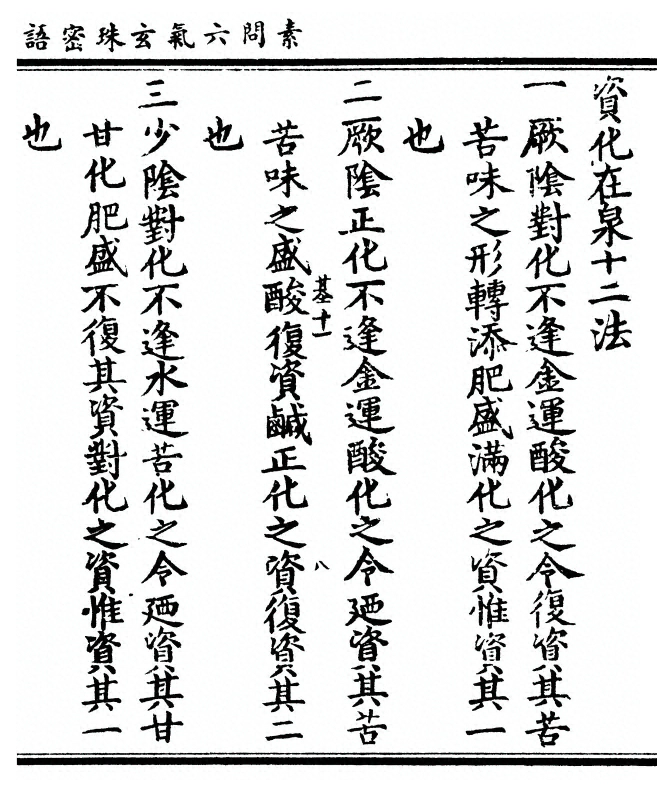 素問六氣玄珠密語
資化在泉十二法
一厥陰對化不逢金運酸化之令復資其苦
苦味之形轉添肥盛滿化之資惟資其一
也
二厥陰正化不逢金運酸化之令廼資其苦
基十一
八
苦味之盛酸復資鹹正化之資復資其二
也
三少陰對化不逢水運苦化之令廼資其甘
甘化肥盛不復其資對化之資惟資其一
也